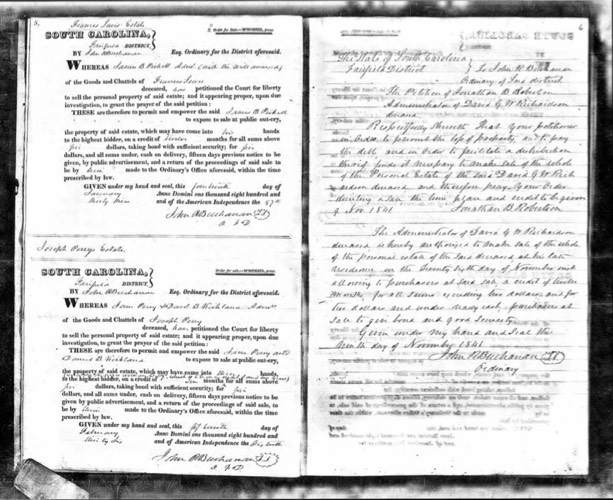 5,
Francis Ives Estate
SOUTH CAROLINA,
Fairfield DISTRICT,
Order for Sale
BY John Buchanan Esq. Ordinary for the District aforesaid.
WHEREAS James B Pickett Admr with the will annexed
of the Goods and Chattels of Francis
deceased, has petitioned the Court for liberty
to sell the personal property of said estate; and it appearing proper, upon due
investigation, to grant the prayer of the said petition:
THESE are therefore to permit and empower the said James B Pickett
to expose to sale at public out-cry,
the property of said estate, which may have come into his hands,
to the highest bidder, on a credit of months for all sums above
five dollars, taking bond with sufficient security; for five
dollars, and all sums under, cash on delivery, fifteen days previous notice to be
given, by public advertisement, and a return of the proceedings of said sale to
be by him made to the Ordinary's Office aforesaid, within the time
prescribed by law.
GIVEN under my hand and seal, this fourteenth day of
January Anno Domini one thousand eight hundred and
thirty three and of the American Independence the 57th
John Buchanan
O F D
Joseph Perrys Estate
SOUTH CAROLINA,
Fairfield DISTRICT,
Order for sale
BY John Buchanan Esq. Ordinary for the District aforesaid.
WHEREAS Perry & David B Kirkland Admrs
of the Goods and Chattels of Joseph Perry
deceased, has petitioned the Court for liberty
to sell the personal property of said estate; and it appearing proper, upon due
investigation, to grant the prayer of the said petition:
THESE are therefore to permit and empower the said Perry and
David B Kirkland to expose to sale at public out-cry,
the property of said estate, which may have come into their hands,
to the highest bidder, on a credit of months for all sums above
five dollars, taking bond with sufficient security; for five
dollars, and all sums under, cash on delivery, fifteen days previous notice to be
given by public advertisement, and a return of the proceedings of said sale, to
be by them made to the Ordinary's Office aforesaid, within the time
prescribed by law.
GIVEN under my hand and seal, this day of
February Anno Domini one thousand eight hundred and
thirty six and of the American Independence the Sixtieth
John Buchanan
O F D
6
The State of South Carolina
Fairfield District
To John Buchanan
Ordinary of Said district
The Petition of Jonathan B Robertson
Administrator of David G W Richardson
deceased
Respectfully Sheweth That your petitioner
in Order to prevent the loss of property, and to pay
the debts and in Order to facilitate a distribution
thereof finds it necessary to make sale of the whole
of the Personal Estate of the said David G W Rich
ardson deceased and therefore prays your Order
directing a sale the time place and credit
of Nov 1841 Jonathan B Robertson
The Administrator of David G W Richardson
deceased is hereby authorized to make sale of the whole
of the personal estate of the said deceased at his late
residence on the Twenty Sixth day of November inst
allowing to purchasers at said sale a credit of twelve
months for all sums exceeding ten dollars and for
ten dollars and under ready cash, purchasers at
sale to give bond and good Security
Given under my hand and Seal the
Ninth day of November 1841
John Buchanan
Ordinary